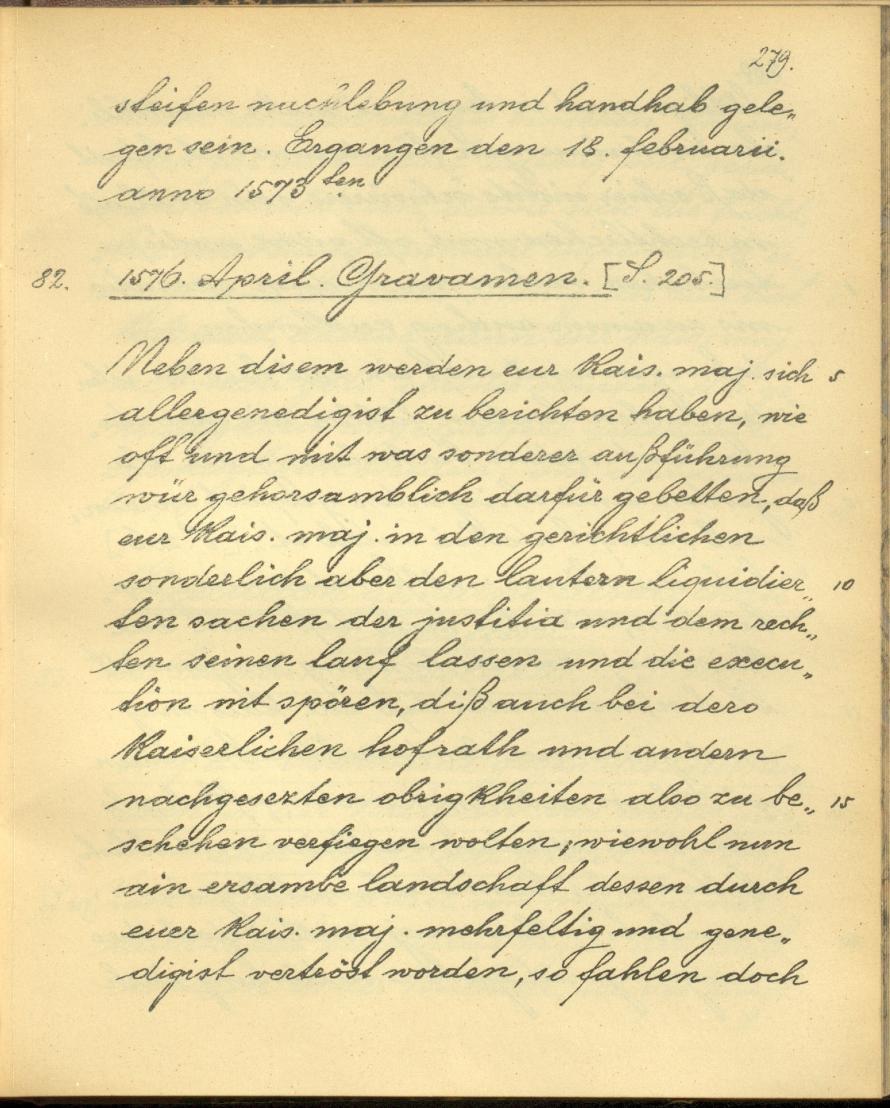 279.
steifen nachlebung und handhab gele„
gen sein. Ergangen den 18. februarii.
anno 1573 ten
82. 1576. April. Gravamen. [S. 205.]
Neben disem werden eur Kais. maj. sich 5
allergenedigist zu berichten haben, wie
oft und mit was sonderer außführung
wür gehorsamblich darfür gebetten, daß
eur Kais. maj. in den gerichtlichen
sonderlich aber den lautern liquidier„ 10
ten sachen der justitia und dem rech„
ten seinen lauf lassen und die execu„
tion nit spören, diß auch bei dero
Kaiserlichen hofrath und andern
nachgesezten obrigkheiten also zu be„ 15
schehen verfiegen wolten, wiewohl nun
ain ersambe landschaft dessen durch
euer Kais. maj. mehrfeltig und gene„
digist vertröst worden, so fahlen doch